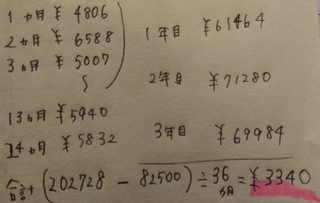 1ヶ月 ¥ 4806
2ヶ月 ¥ 6588
3ヶ月 ¥ 5007
〜
13ヶ月 ¥5940
24ヶ月 ¥5832
1年目 ¥61464
2年目 ¥71280
3年目 ¥69984
合計 (202728 - 82500) ÷ 36ヶ月 = ¥3340